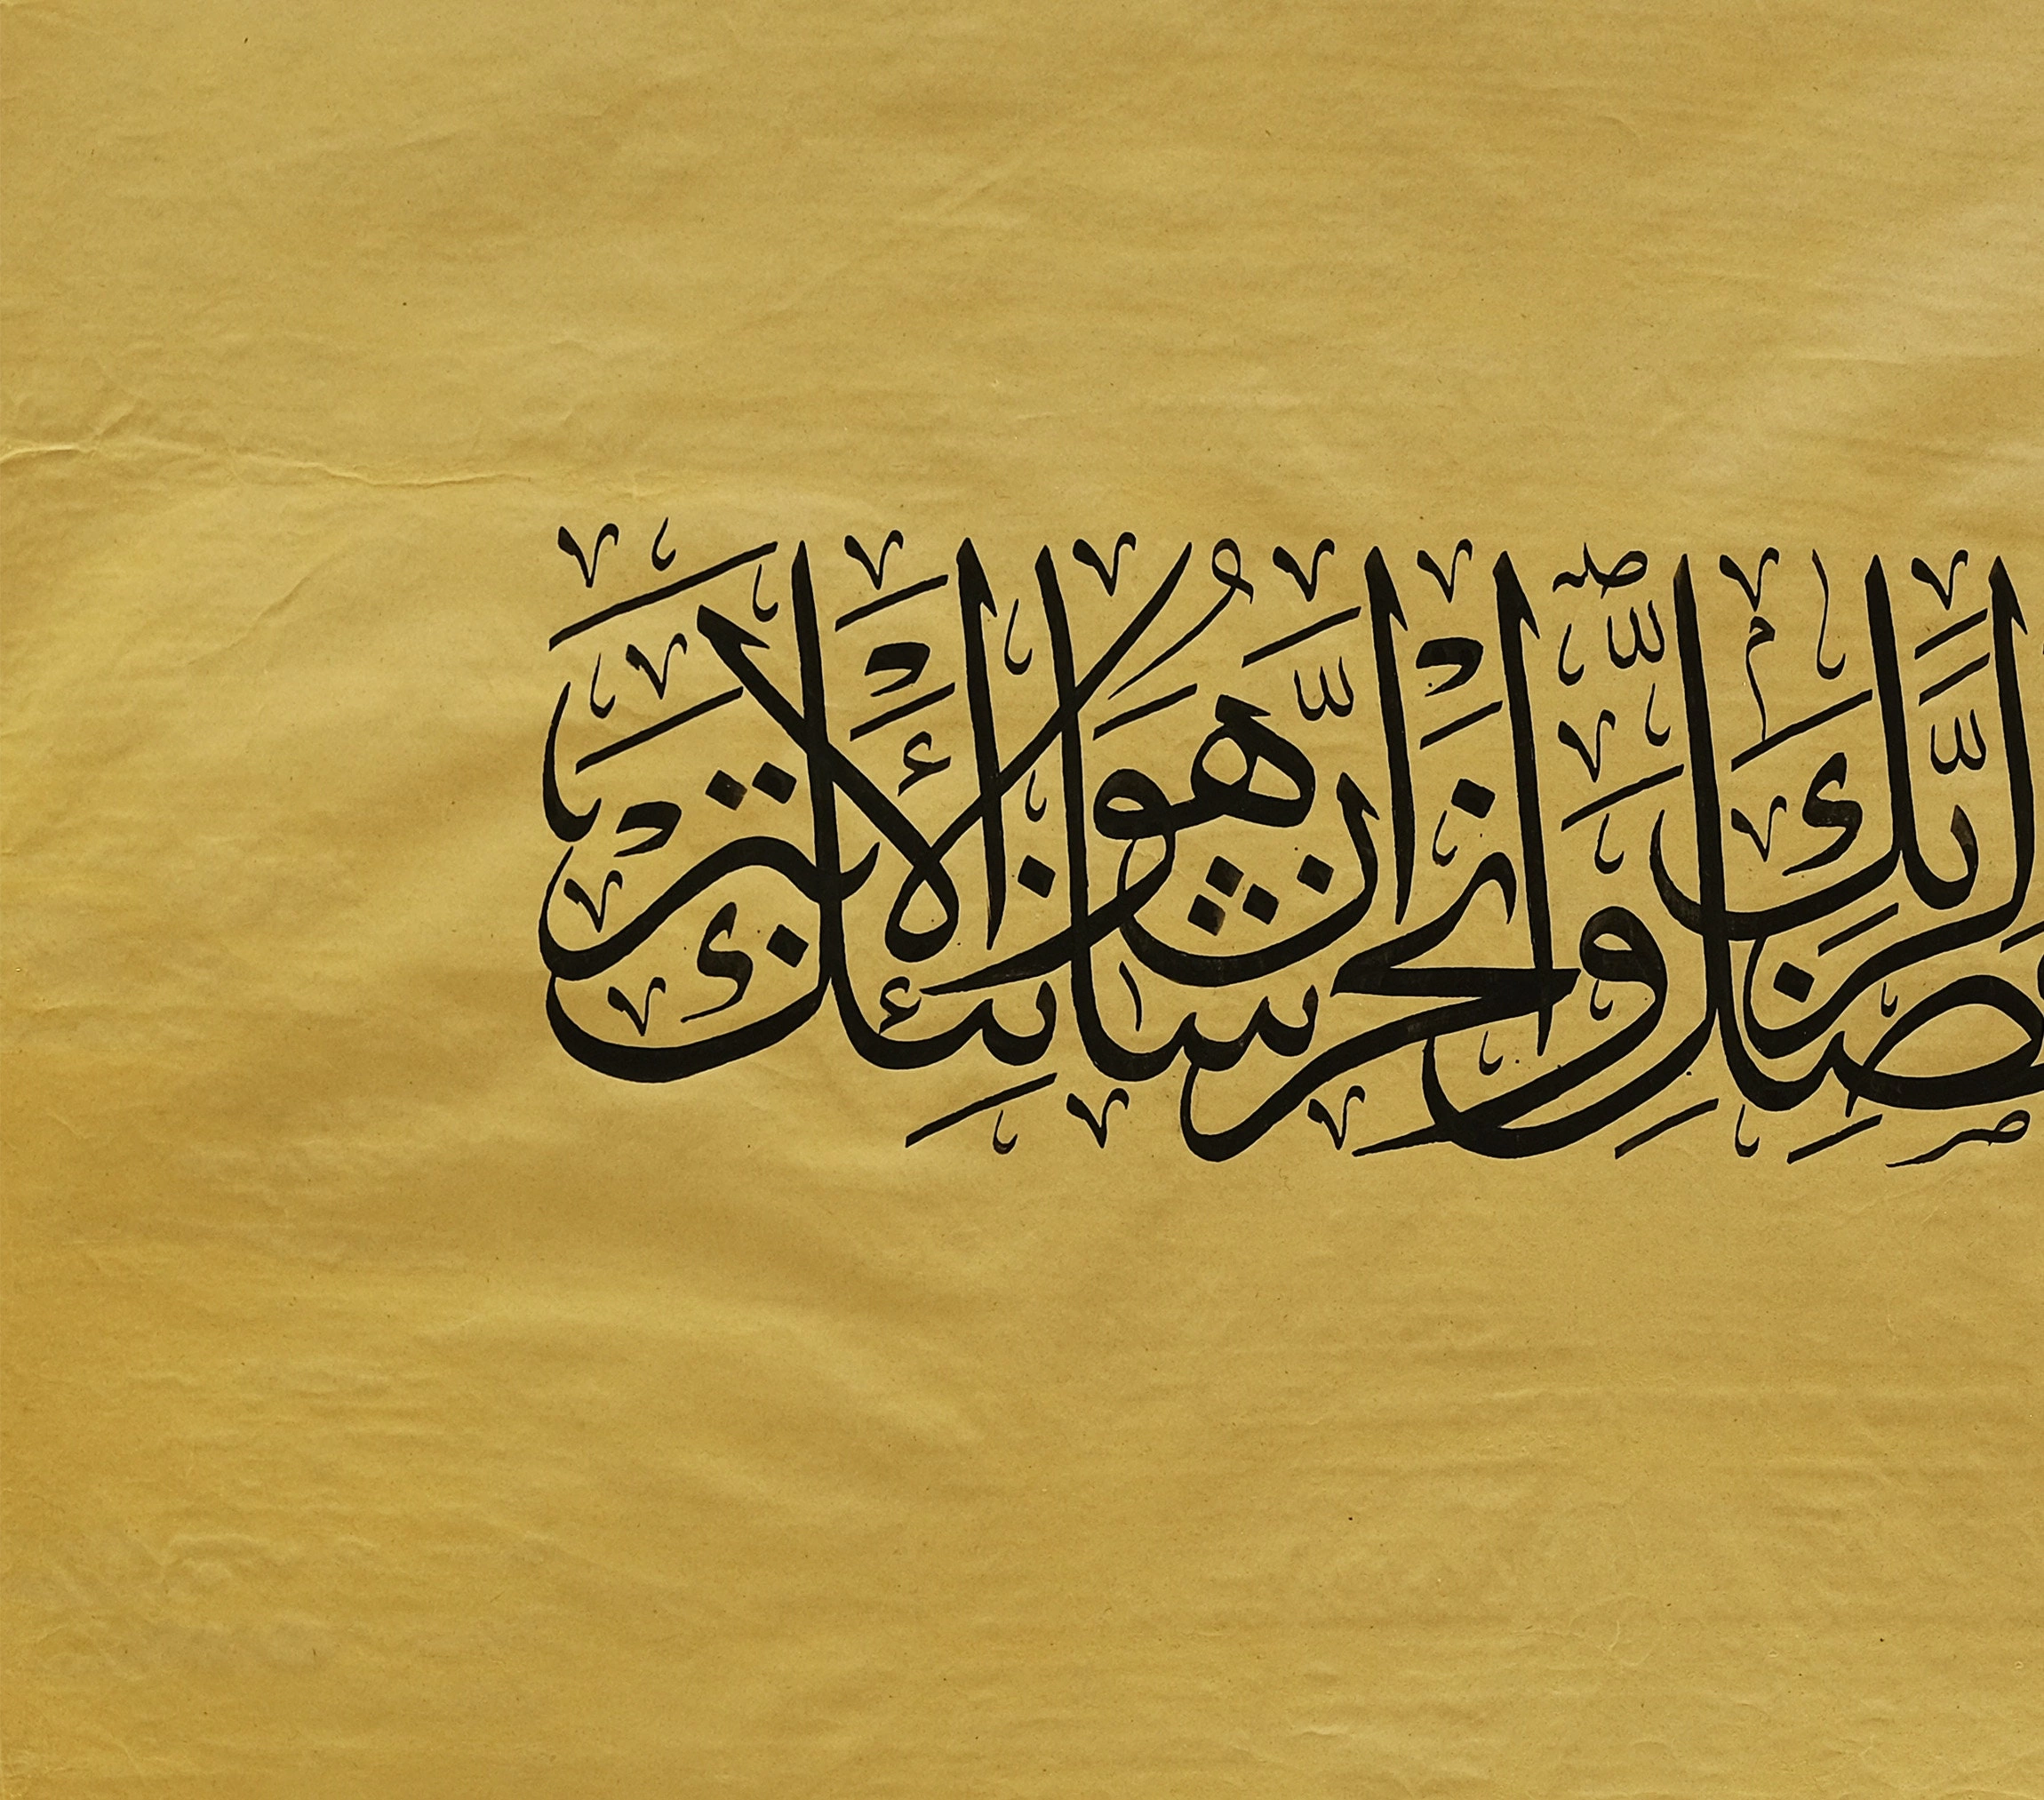 فَصَلِّ لِرَبِّكَ وَانْحَرْ إِنَّ شَانِئَكَ هُوَ الْأَبْتَرُ